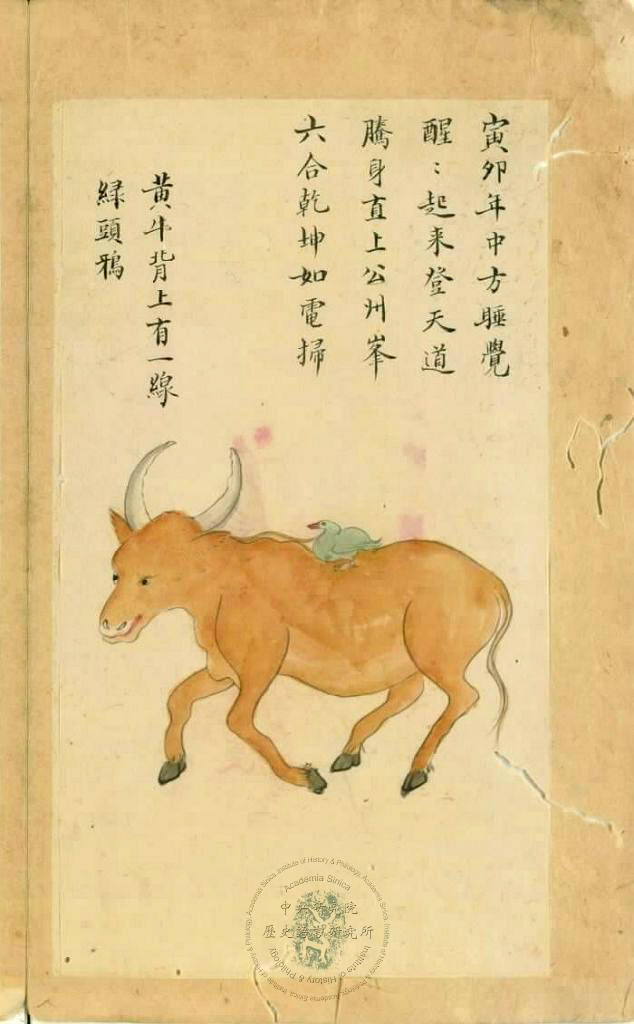 寅卯年中方睡覺
醒：起来登天道
騰身直上公州峯
六合乾坤如電掃
黃牛背上有一線
緑頭鴉
中央研究院
歷史語言研究所
Academia Sinica
Institute of History & Philology